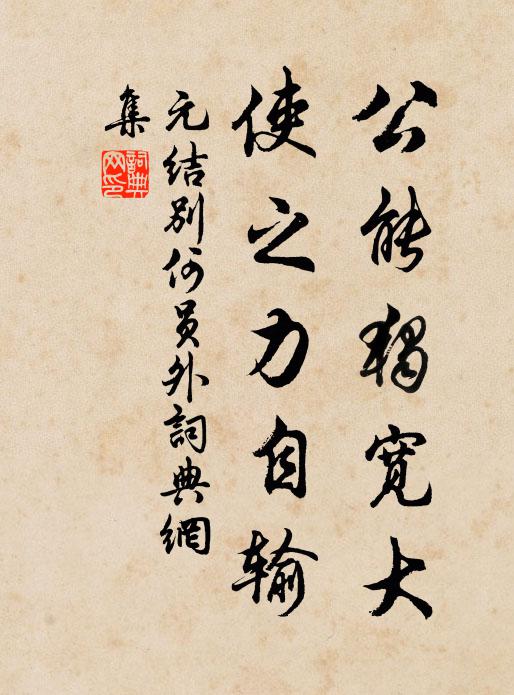 公能独宽大
使之力自输
元结别何员外詞典網
集
詞典網印